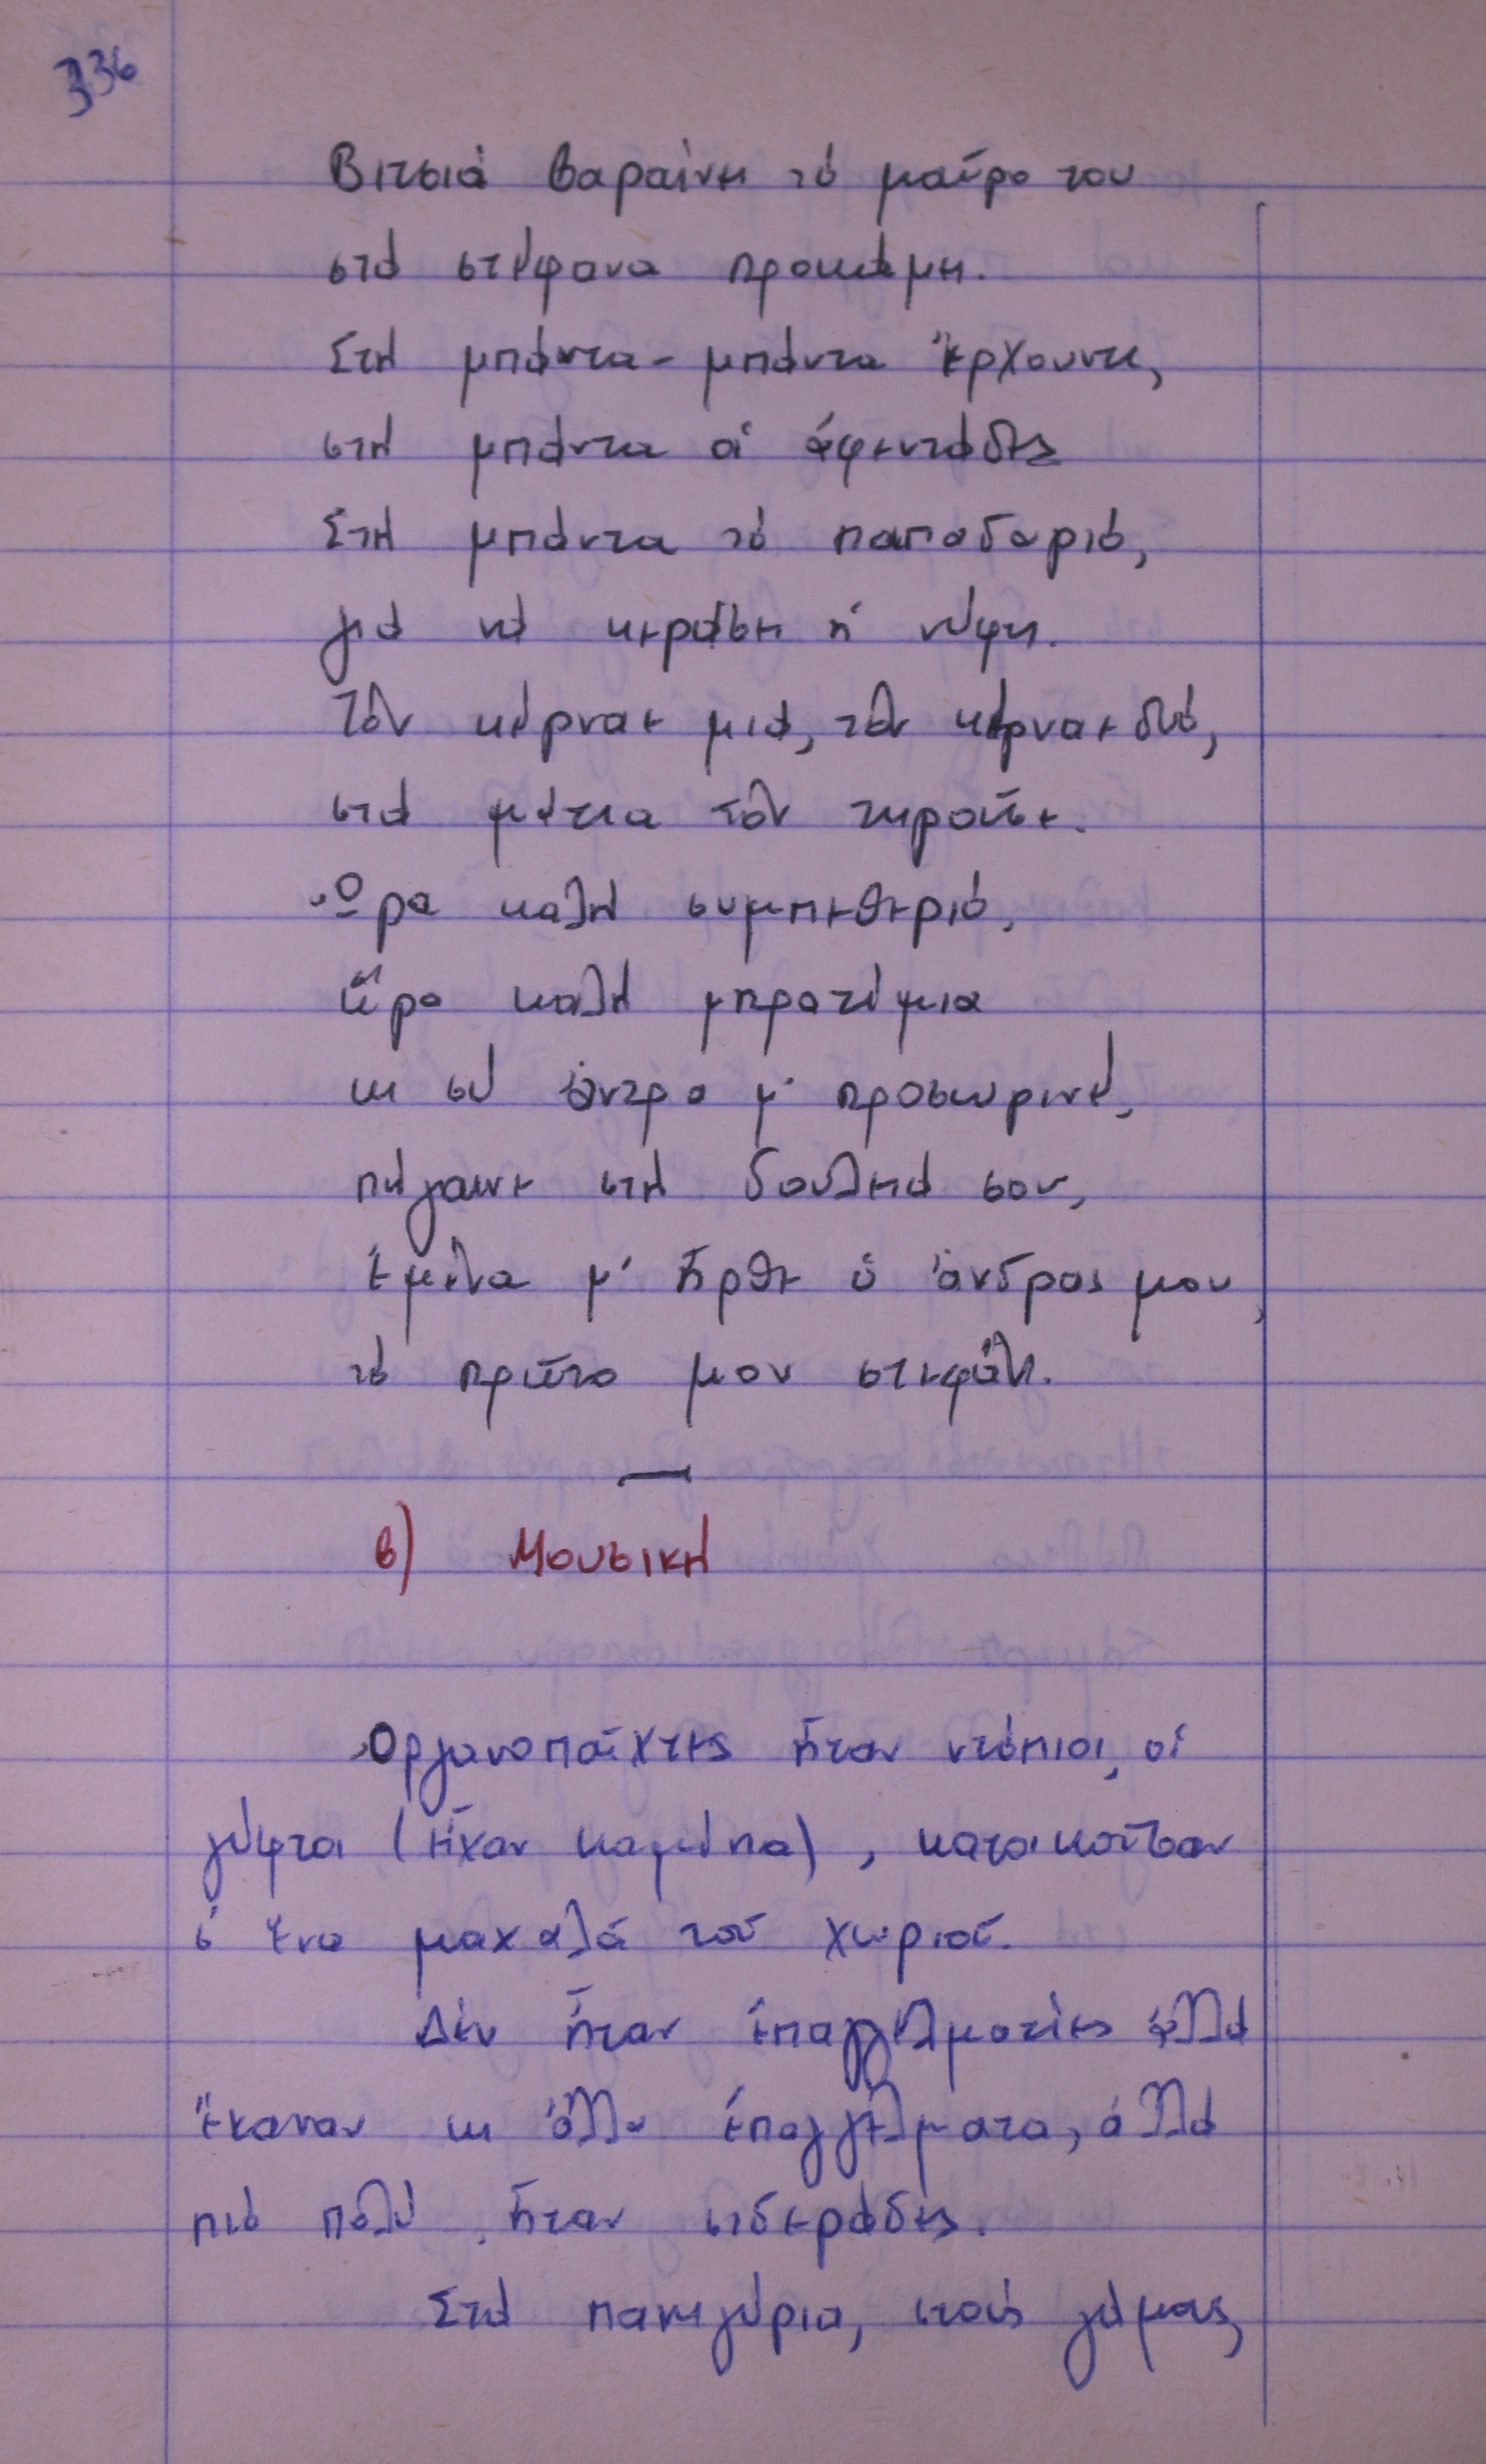 336
Βιτσιά βαραίνει τό μαῦρο του
στά στέφανα προκάμει.
Στή μπάντα - μπάντα ἔρχουντι,
στή μπάντα οἱ ἀφεντάδες
Στή μπάντα τό παπαδαριό,
γιά νά κεράσει ἡ νύφη.
Τόν κέρναε μιά, τόν κέρναε δυό,
στά μάτια τόν τηροῦσε.
Ὥρα καλή συμπεθεριό,
ὥρα καλή μπρατίμια
κι σύ ἄντρα μ' προσωρινέ,
πήγαινε στή δουλειά σου,
ἐμένα μ' ἦρθε ὁ ἄνδρας μου,
τό πρῶτο μου στεφάνι.
—
β) Μουσική
Ὀργανοπαῖχτες ἦταν ντόπιοι, οἱ
γύφτοι (εἶχαν καμίνια), κατοικοῦσαν
σ' ἕνα μαχαλά τοῦ χωριοῦ.
Δέν ἦταν ἐπαγγελματίες ἀλλά
ἔκαναν κι ἄλλα ἐπαγγέλματα, ἀλλά
πιό πολύ ἦταν σιδεράδες.
Στά πανηγύρια, στούς γάμους